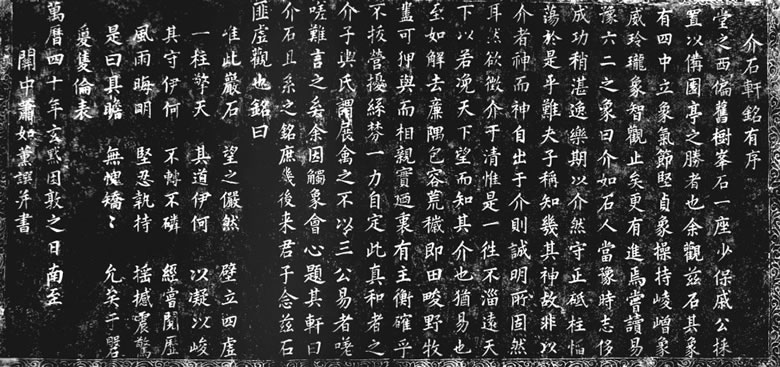 介石軒銘有序
堂之西偏舊樹峯石一座少保戚公採
置以備園亭之勝者也余觀茲石其象
有四中立象氣節堅貞象操持崚嶒象
威玲瓏象智觀止矣更有進焉嘗讀易
豫六二之象曰介如石人當豫時志侈
成功稍湛逸樂期以介然守正砥柱慆
蕩於是乎難夫子稱知幾其神故非以
介者神而神自出于介則誠明所固然
耳然欲徵介于清惟是一往不淄遠天
下以若浼天下望而知其介也猶易也
至如解去廉隅包容荒穢即田畯野牧
盡可狎與而相親實迺裏有主衡確乎
不拔營擾絲棼一力自定此真和者之
介子輿氏謂展禽之不以三公易者嗟
嗟難言之矣余因觸象會心題其軒曰
介石且系之銘庶幾後来君子念茲石
匪虛觀也銘曰
唯此巖石 望之儼然 壁立四虛
一柱擎天 其道伊何 以凝以峻
其守伊何 不轉不磷 經嘗閱歷
風雨晦明 堅忍執持 搖撼震驚
是曰具瞻 無愧矯〻 允矣于磐
奭隻倫表
萬曆四十年玄黓困敦之日南至
閩中蕭如薰譔并書